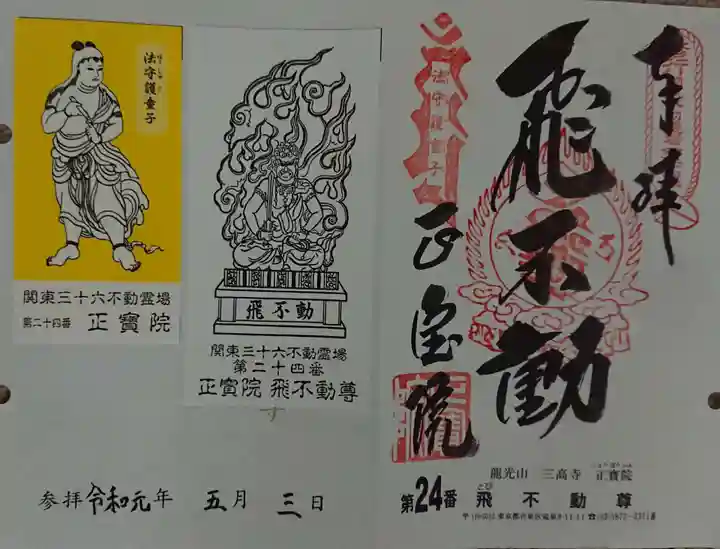 法守護童子
関東三十六不動霊場
第二十四番 正寳院
飛不動
関東三十六不動霊場
第二十四番
正寳院 飛不動尊
参拝 令和元年 五月 三日
奉拝
飛不動
正宝院
法守護童子
龍光山 三高寺 正寳院
とび
第24番 飛不動尊